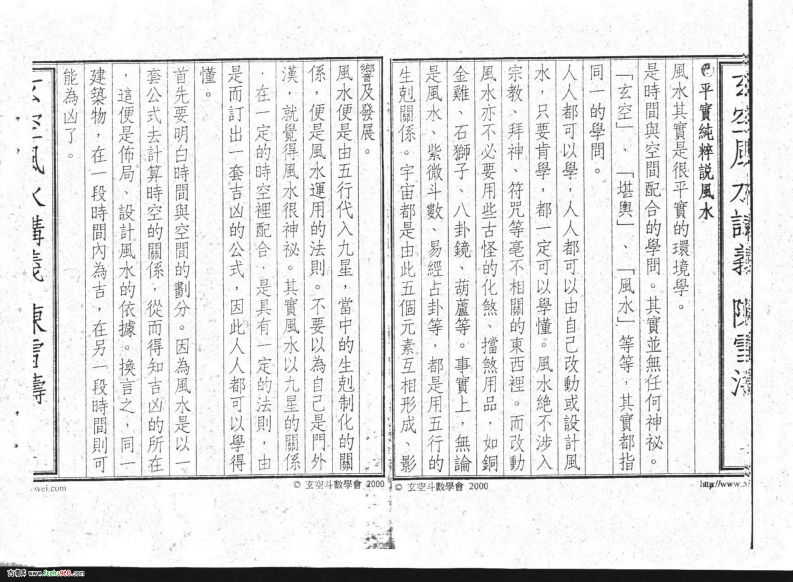 玄空風水講義 陳雪濤
平實純粹説風水
風水其實是很平實的環境學。
是時間與空間配合的學問。其實並無任何神祕。
「玄空」、「堪輿」、「風水」等等，其實都指
同一的學問。
人人都可以學，人人都可以由自己改動或設計風
水，只要肯學，都一定可以學懂。風水絶不涉入
宗教、拜神、符咒等毫不相關的東西裡。而改動
風水亦不必要用些古怪的化煞、擋煞用品，如銅
金雞、石獅子、八卦鏡、葫蘆等。事實上，無論
是風水、紫微斗數、易經占卦等，都是用五行的
生剋關係。宇宙都是由此五個元素互相形成、影
© 玄空斗數學會 2000
http://www.
響及發展。
風水便是由五行代入九星，當中的生剋制化的關
係，便是風水運用的法則。不要以為自己是門外
漢，就覺得風水很神祕。其實風水以九星的關係
，在一定的時空裡配合，是具有一定的法則，由
是而訂出一套吉凶的公式，因此人人都可以學得
懂。
首先要明白時間與空間的劃分。因為風水是以一
套公式去計算時空的關係，從而得知吉凶的所在
，這便是佈局、設計風水的依據。換言之，同一
建築物，在一段時間內為吉，在另一段時間則可
能為凶了。
玄空風水講義 陳雪濤
© 玄空斗數學會 2000
wei.com